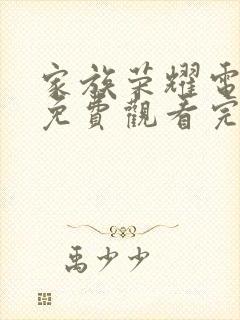 家族荣耀電
免費觀看完
禹少少